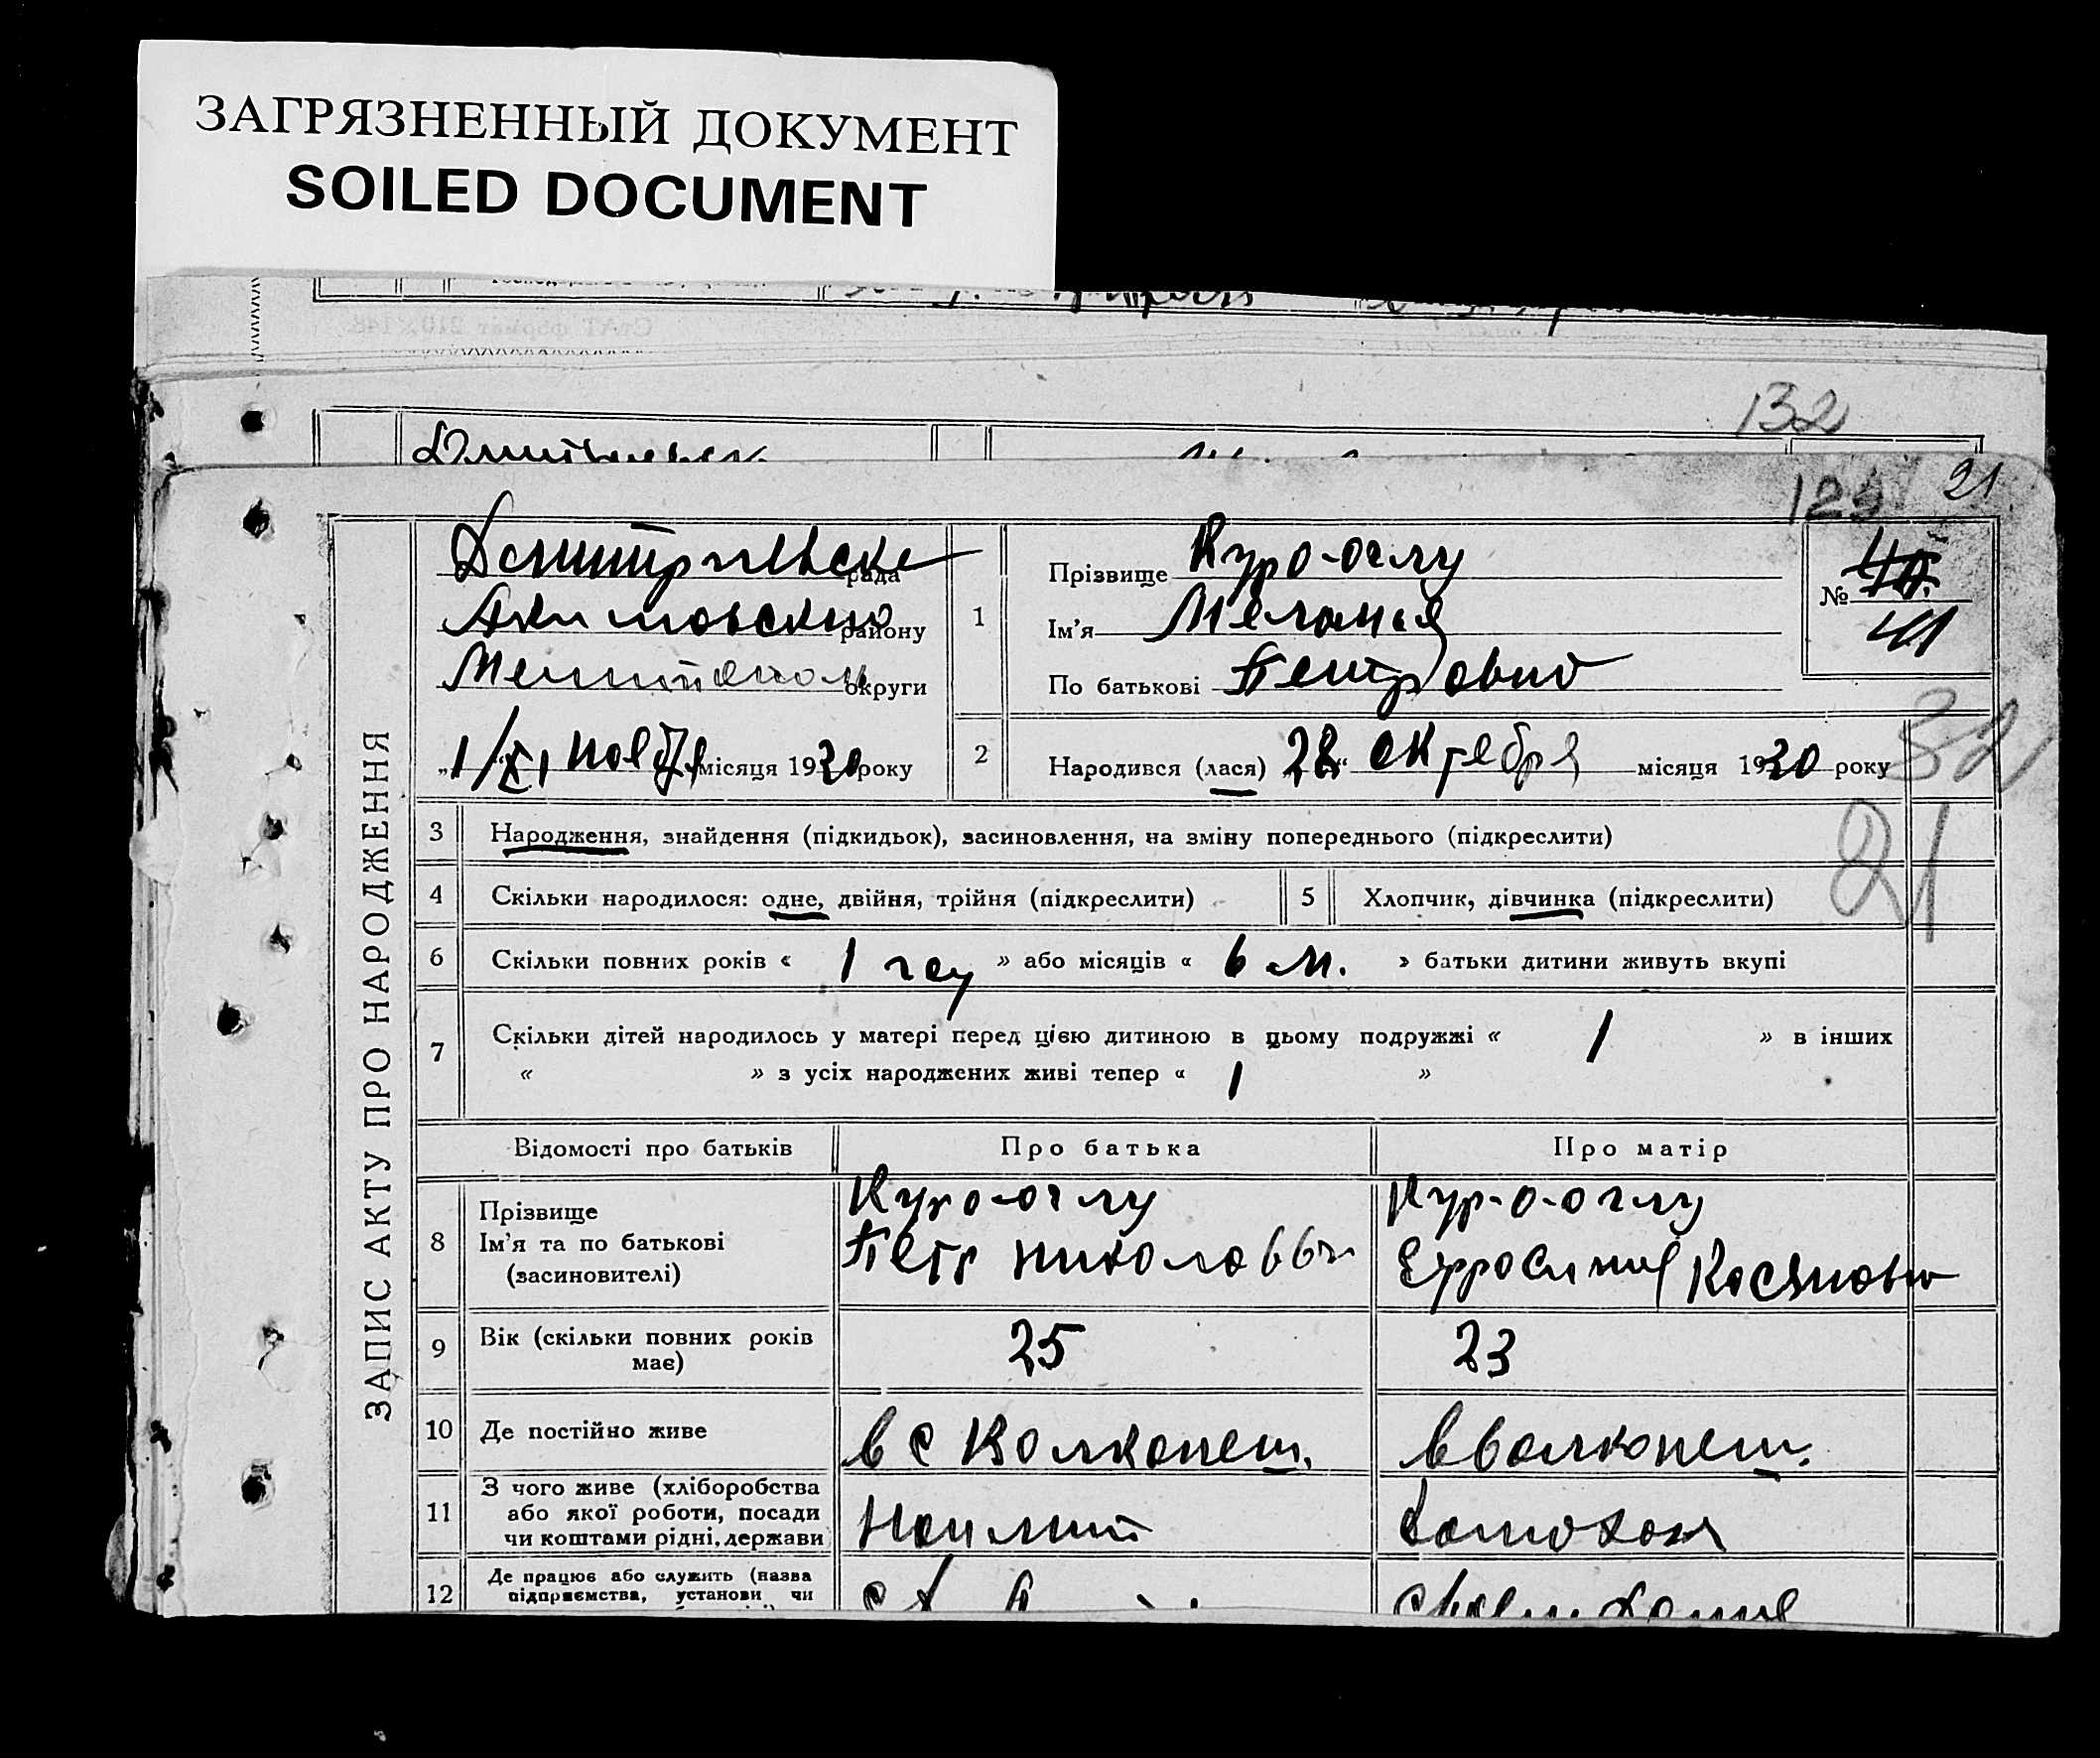 ЗАГРЯЗНЕННЫЙ ДОКУМЕНТ
SOILED DOCUMENT
132
129 21
ЗАПИС АКТУ ПРО НАРОДЖЕННЯ
Дмитриевске рада
Акимовскию району
округи
1/XI ноя місяця 1930 року
1
Прізвище Куро-оглу
Ім'я Мелания
По батькові Петровно
№ 40.
41
2
Народився (лася) 28 октебря місяця 1930 року
32
21
3 Народження, знайдення (підкидьок), засиновлення, на зміну попереднього (підкреслити)
4 Скільки народилося: одне, двійня, трійня (підкреслити) 5 Хлопчик, дівчинка (підкреслити)
6 Скільки повних років « 1 » або місяців « 6 м. » батьки дитини живуть вкупі
7 Скільки дітей народилось у матері перед цією дитиною в цьому подружжі « 1 » в інших
« » з усіх народжених живі тепер « 1 »
Відомості про батьків Про батька Про матір
8 Прізвище Куро-оглу Кур-о-оглу
Ім'я та по батькові Петр Касяновн
(засиновителі)
9 Вік (скільки повних років 25 23
має)
10 Де постійно живе в с Волконеш. в Волконеш.
11 З чого живе (хліборобства
або якої роботи, посади
чи коштами рідні, держави
12 Де працює або служить (назва
підприємства, установи чи